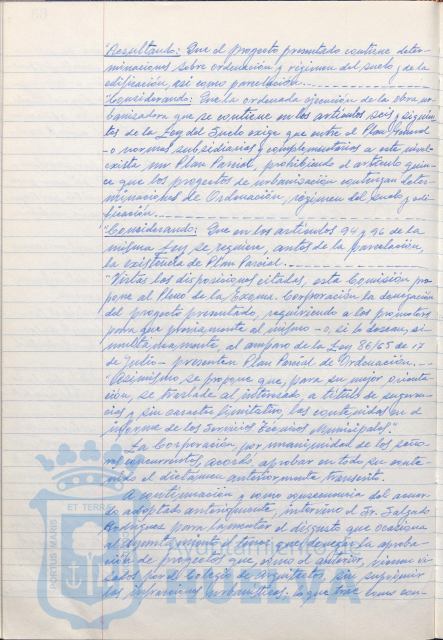 "Resultando: Que el proyecto presentado contiene deter-
minaciones sobre ordenación y régimen del suelo y de la
edificación, así como parcelación.
"Considerando: Que la ordenada ejecución de la obra ur-
banizadora que se contiene en los artículos seis y siguien-
tes de la Ley del Suelo exige que entre el Plan General
-o normas subsidiarias y complementarias- a este
exista un Plan Parcial, prohibiendo el artículo quin-
ce que los proyectos de urbanización contengan deter-
minaciones de Ordenación, régimen del suelo y edi-
ficación.
"Considerando: Que en los artículos 94 y 96 de la
misma Ley se requiere, antes de la parcelación,
la existencia de Plan Parcial.
"Vistas las disposiciones citadas, esta Comisión pro-
pone al Pleno de la Excma. Corporación la denegación
del proyecto presentado, requiriendo a los promotores
para que previamente al mismo -o, si lo desean, si-
multáneamente al amparo de la Ley 86/65 de 17
de julio- presenten Plan Parcial de Ordenación.
"Asimismo, se propone que, para su mejor orienta-
ción, se traslade al interesado, a título de sugeren-
cias y sin caracter limitativo, las contenidas en el
informe de los Servicios Técnicos Municipales".
La Corporación, por unanimidad de los seño-
res concurrentes, acordó aprobar en todo su conte-
nido el dictamen anteriormente transcrito.
A continuación y como consecuencia del acuer-
do adoptado anteriormente, interviene el Sr. Salgado
Rodríguez para lamentar el disgusto que ocasiona
al Ayuntamiento el tener que denegar la aproba-
ción de proyectos que, como el anterior, vienen vi-
sados por el Colegio de Arquitectos, sin suprimir
las infracciones urbanísticas, lo que trae como con-
PORTUS MARIS ET TERRÆ
Ayuntamiento de
HUELVA